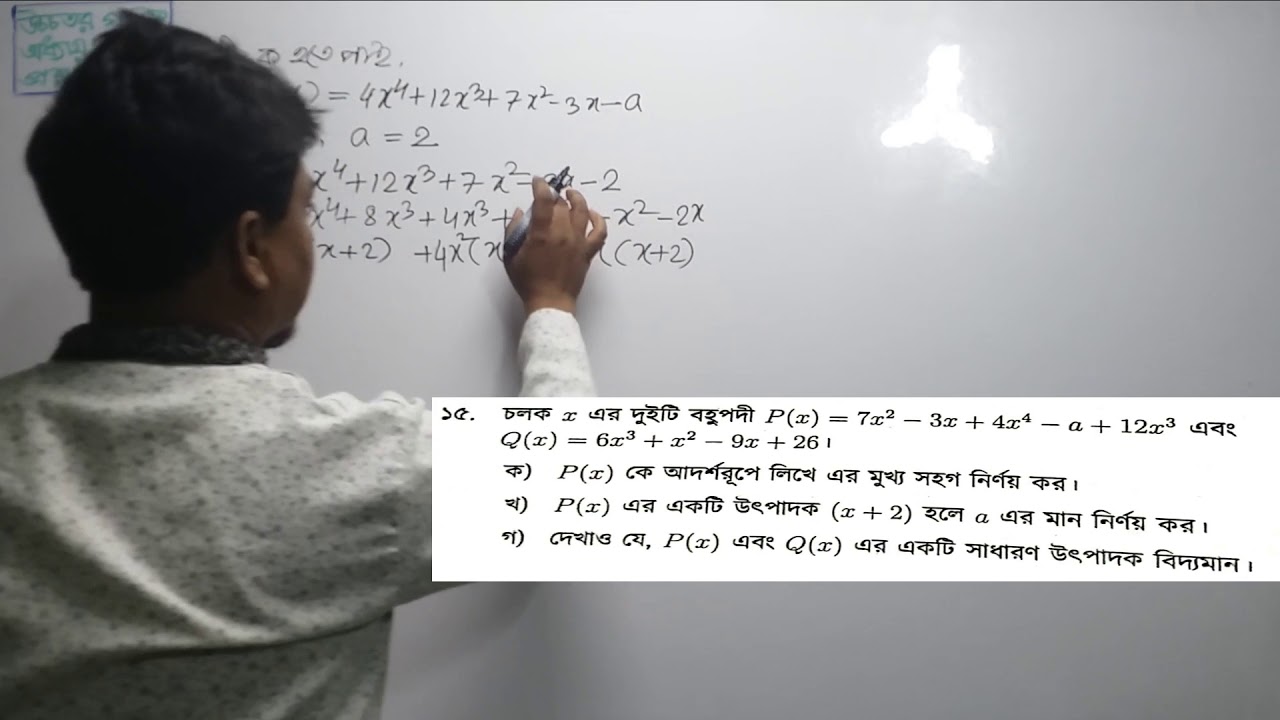 উচ্চতর
অধ্যায়
হতে পাই,
) = 4x⁴+12x³+7x²-3x-a
a = 2
x⁴+12x³+7x²- -2
x⁴+8x³+4x³+ -x²-2x
x+2) +4x²(x ((x+2)
১৫. চলক x এর দুইটি বহুপদী P(x) = 7x² − 3x + 4x⁴ − a + 12x³ এবং
Q(x) = 6x³ + x² − 9x + 26।
ক) P(x) কে আদর্শরূপে লিখে এর মুখ্য সহগ নির্ণয় কর।
খ) P(x) এর একটি উৎপাদক (x + 2) হলে a এর মান নির্ণয় কর।
গ) দেখাও যে, P(x) এবং Q(x) এর একটি সাধারণ উৎপাদক বিদ্যমান।